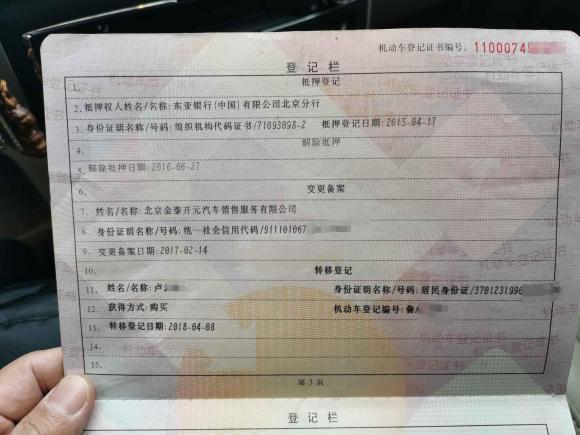 机动车登记证书编号:1100074
登记栏
1. 抵押登记
2. 抵押权人姓名/名称:东亚银行(中国)有限公司北京分行
3. 身份证明名称/号码:组织机构代码证书/71093098-2 抵押登记日期:2015-04-17
4. 解除抵押
5. 解除抵押日期:2016-06-27
6. 变更备案
7. 姓名/名称:北京金泰开元汽车销售服务有限公司
8. 身份证明名称/号码:统一社会信用代码/911101067
9. 变更备案日期:2017-02-14
10. 转移登记
11. 姓名/名称:卢 身份证明名称/号码:居民身份证/3701231990
12. 获得方式:购买 机动车登记编号:鲁A
13. 转移登记日期:2018-04-08
14.
15.
第3页
登记栏